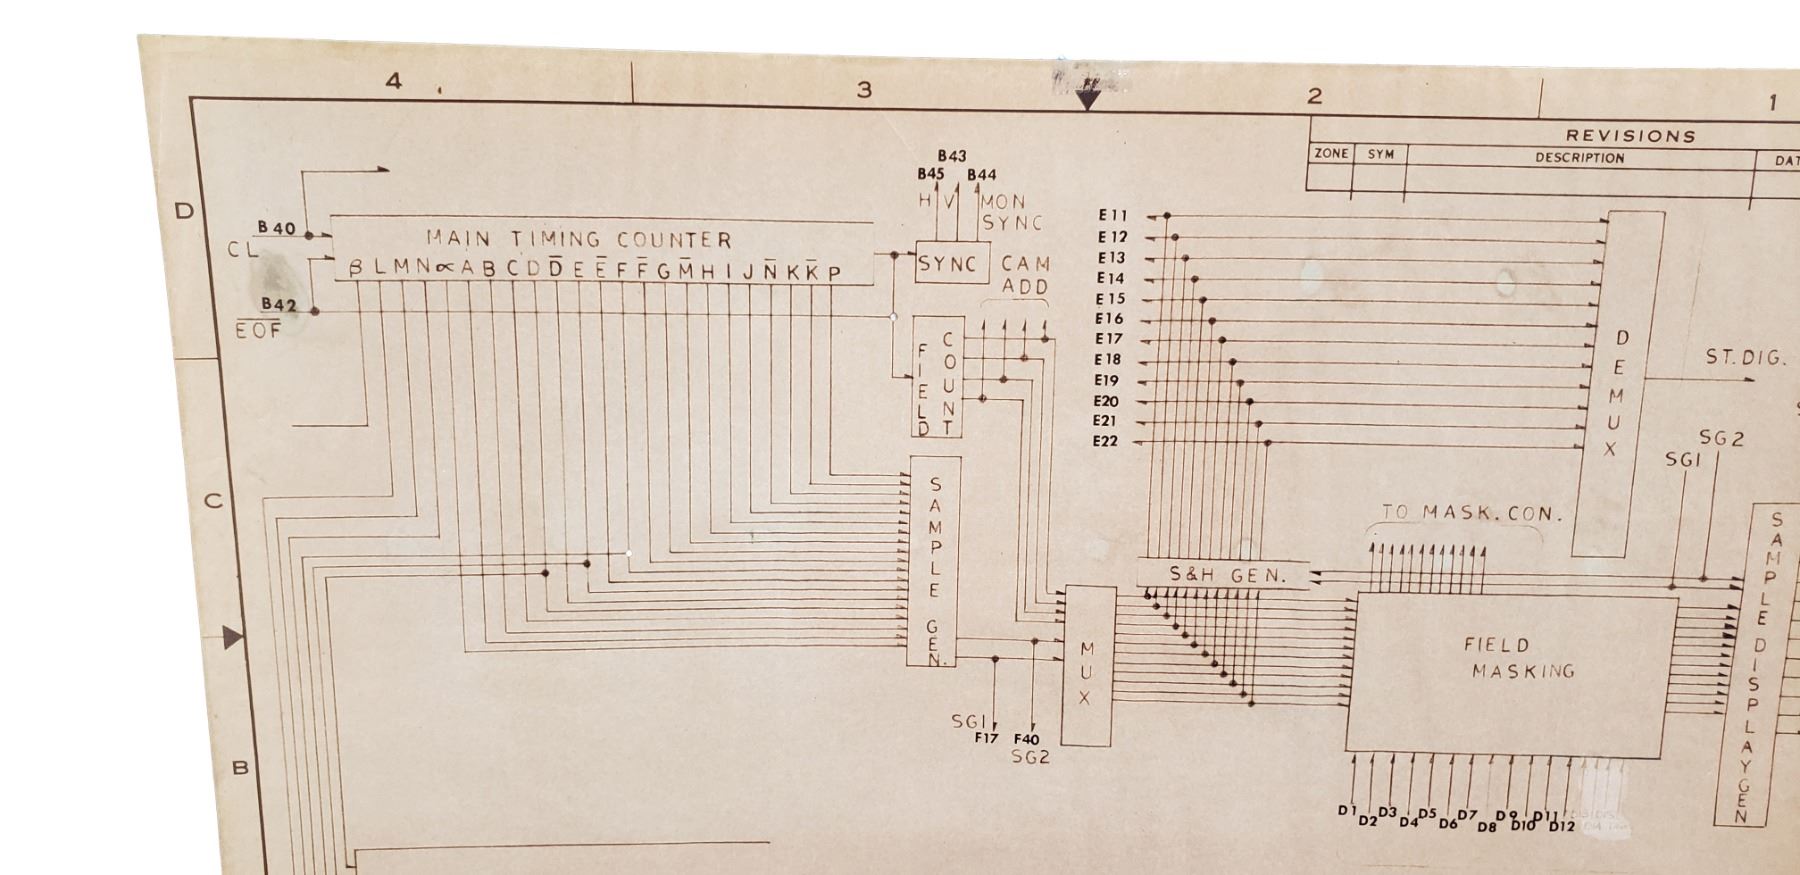 4
3
2
1
REVISIONS
ZONE SYM DESCRIPTION
D
C
B
B40
CL
B42
E̅O̅F̅
MAIN TIMING COUNTER
β L M N ∝ A B C D D̅ E E̅ F F̅ G M̅ H I J N̅ K K̅ P
B43
B45 B44
H V MON
SYNC
SYNC
CAM
ADD
FIELD
COUNT
SAMPLE GEN.
SG1
F17 F40
SG2
MUX
E11
E12
E13
E14
E15
E16
E17
E18
E19
E20
E21
E22
DEMUX
ST.DIG.
SG2
SG1
TO MASK. CON.
S&H GEN.
FIELD
MASKING
SAMPLE DISPLAY GEN
D1 D2 D3 D4 D5 D6 D7 D8 D9 D10 D11 D12